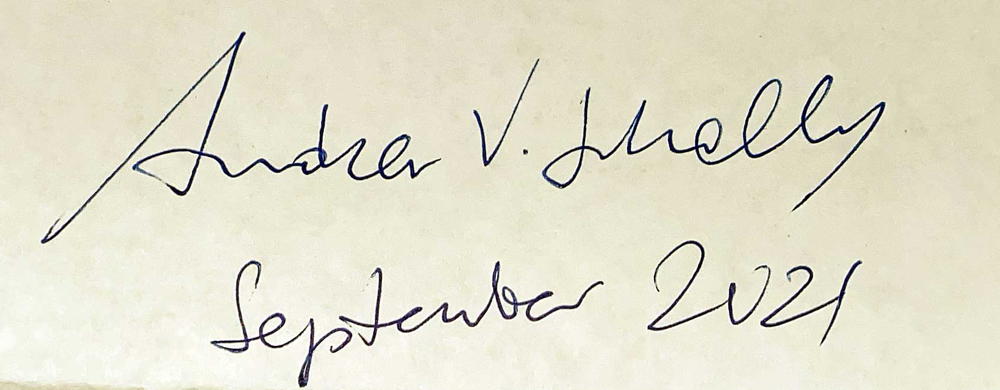 Andrew V. Snelly
September 2021